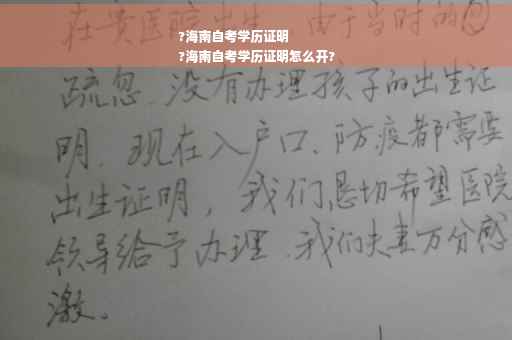 在贵医院出生，由于当时的
?海南自考学历证明
?海南自考学历证明怎么开?
疏忽、没有办理孩子的出生证
明、现在入户口、防疫都需要
出生证明，我们恳切希望医院
领导给予办理、我们夫妻万分感
激。